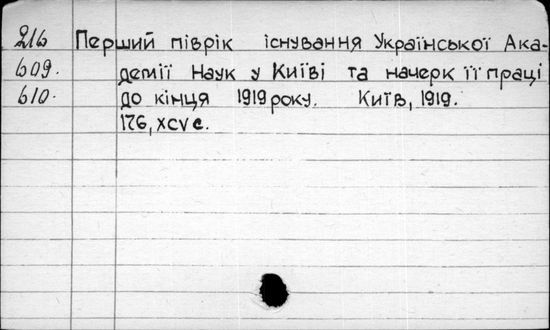 216 Перший піврік існування Української Ака-
609. демії Наук у Київі та начерк її праці
610. до кінця 1919 року. Київ, 1919.
176, XCV с.